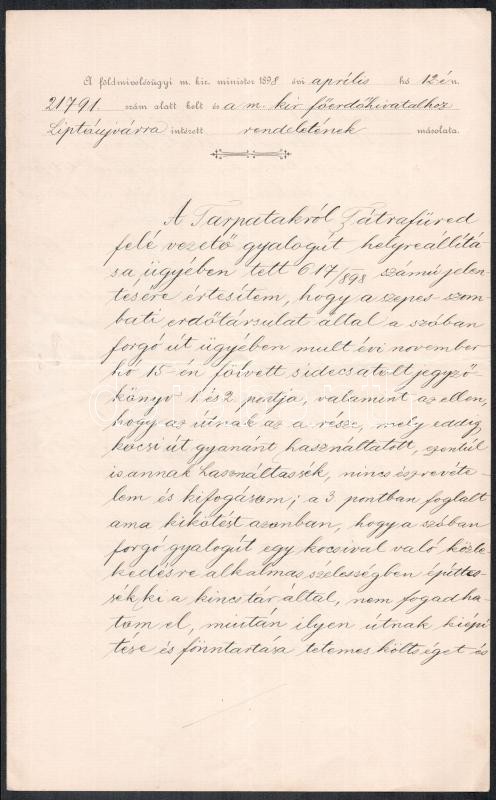 A földmivelésügyi m. kir. minister 1898 évi április hó 12-én.
21791. szám alatt kelt és a m. kir főerdőhivatalhoz
Liptóujvárra intézett rendeletének másolata.
A Tarpatakról Tátrafüred
felé vezető gyalogút helyreállitá-
sa ügyében tett 617/898 számú jelen-
tésére értesitem, hogy a szepes-szom-
bati erdőtársulat által a szóban
forgó út ügyében mult évi november
hó 15-én fölvett s idecsatolt jegyző-
könyv 1 és 2 pontja, valamint az ellen,
hogy az útnak az a része, mely eddig
kocsi út gyanánt használtatott, ezentúl
is annak használtassék, nincs észrevéte-
lem és kifogásom; a 3 pontban foglalt
ama kikötést azonban, hogy a szóban
forgó gyalogút egy kocsival való közle-
kedésre alkalmas szélességben épittes-
sék ki a kincstár által, nem fogadha-
tom el, miután ilyen útnak kiépi-
tése és fönntartása tetemes költséget és